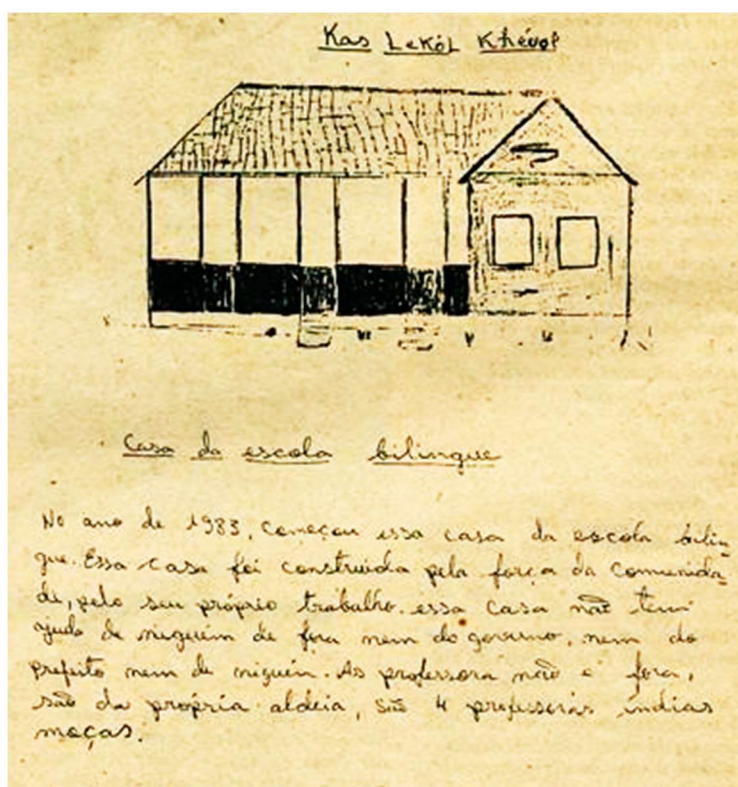 Kas Lekòl Khéuol
Casa da escola bilingue
No ano de 1983, começou essa casa da escola bilin-
gue. Essa casa foi construida pela força da Comunida-
de, pelo seu próprio trabalho. essa casa não tem
ajuda de niguém de fora nem do governo, nem do
prefeito nem de niguém. As professora não é fora,
são da própria aldeia, são 4 professoras índias
moças.